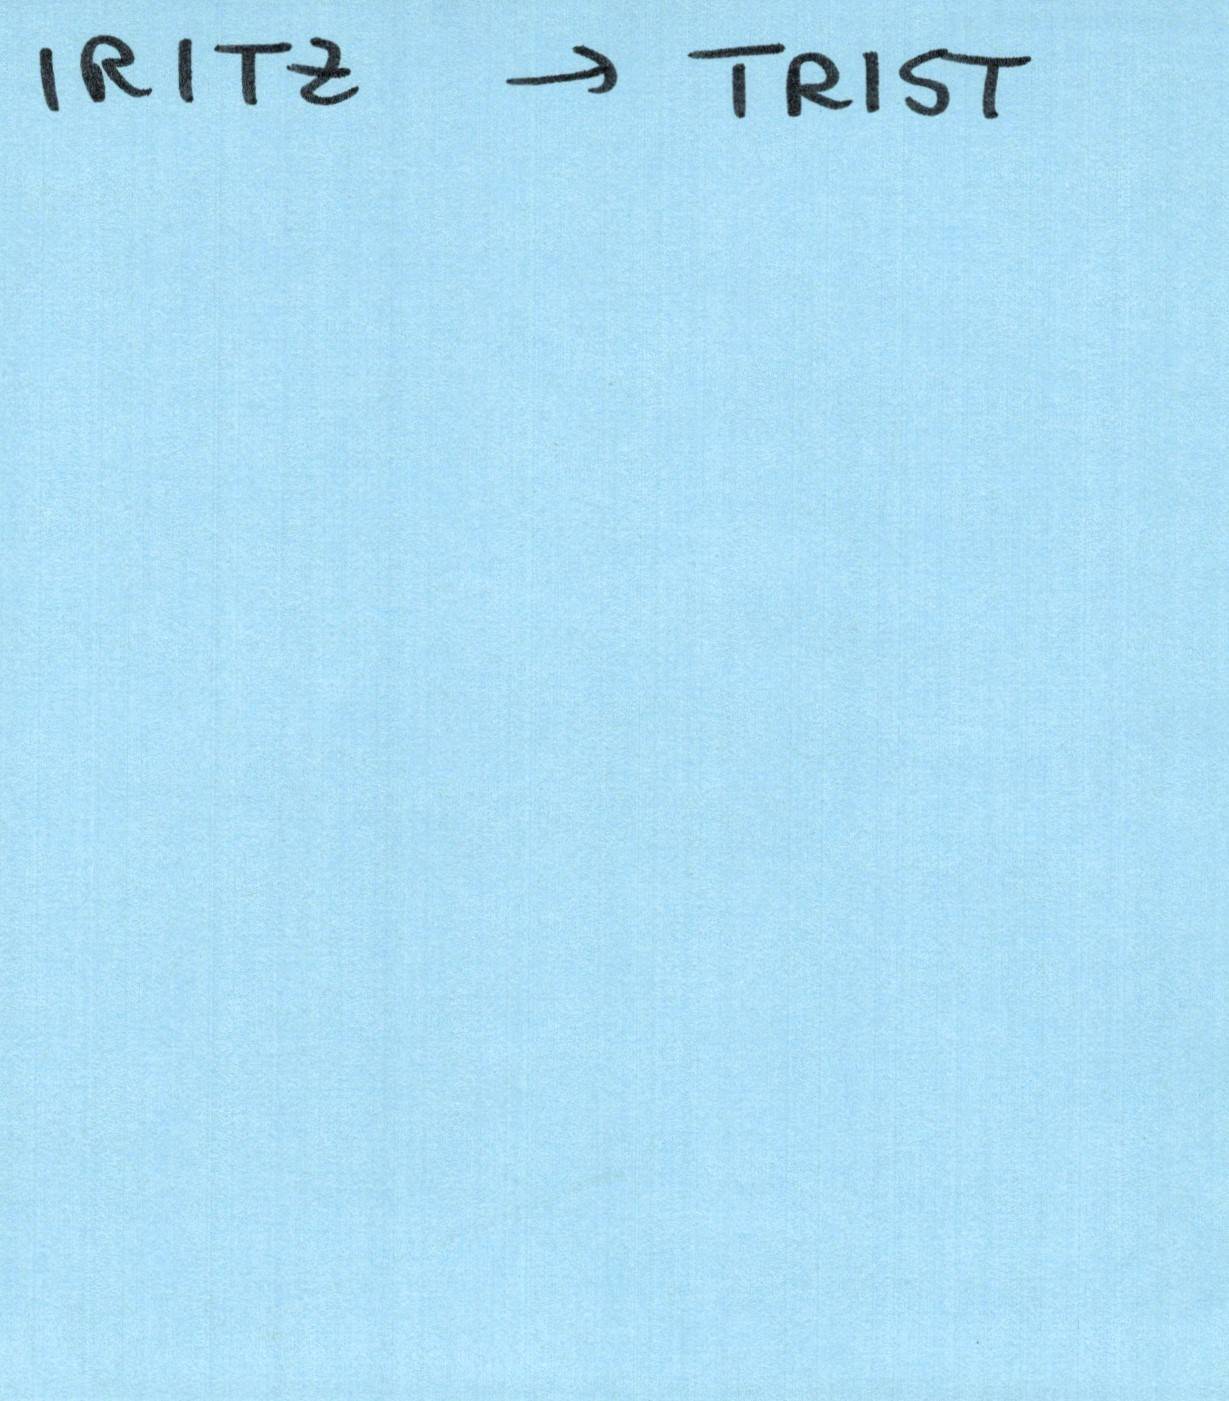 IRITZ → TRIST